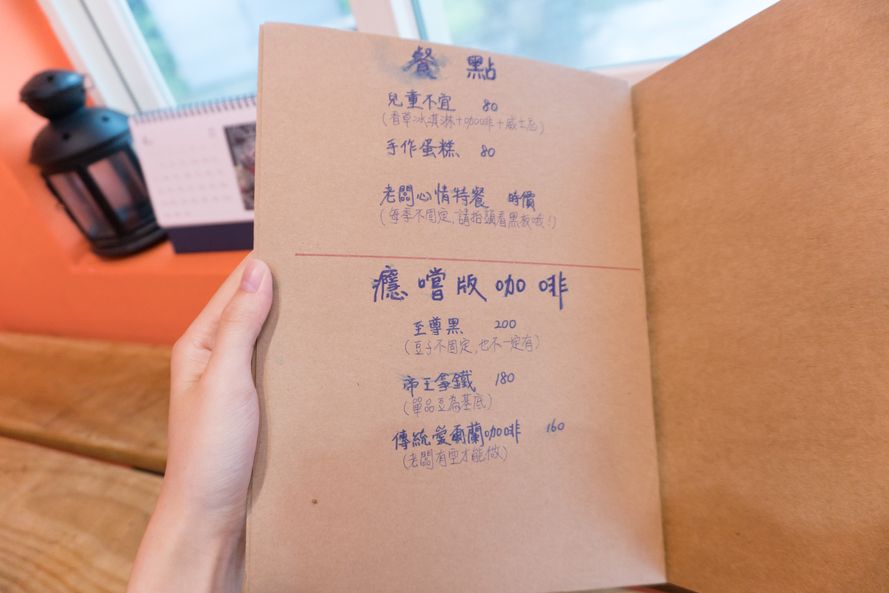 餐點
兒童不宜 80
(香草冰淇淋+咖啡+威士忌)
手作蛋糕 80
老闆心情特餐 時價
(每季不固定,請抬頭看黑板哦!)
癮嚐版咖啡
至尊黑 200
(豆子不固定,也不一定有)
帝王拿鐵 180
(單品豆為基底)
傳統愛爾蘭咖啡 160
(老闆有空才能做)